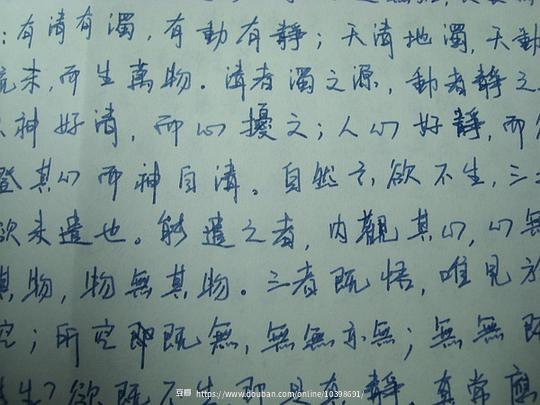 ：有清有濁，有動有靜；天清地濁，天動
流末，而生萬物。清者濁之源，動者靜之
神好清，而心擾之；人心好靜，而
澄其心而神自清。自然六欲不生，三
欲未遣也。能遣之者，內觀其心，心無
其物，物無其物。三者既悟，唯見於
空；所空既無，無無亦無；無無既
生？欲既不生，即是真靜。真常應
豆瓣 https://www.douban.com/online/10398691/